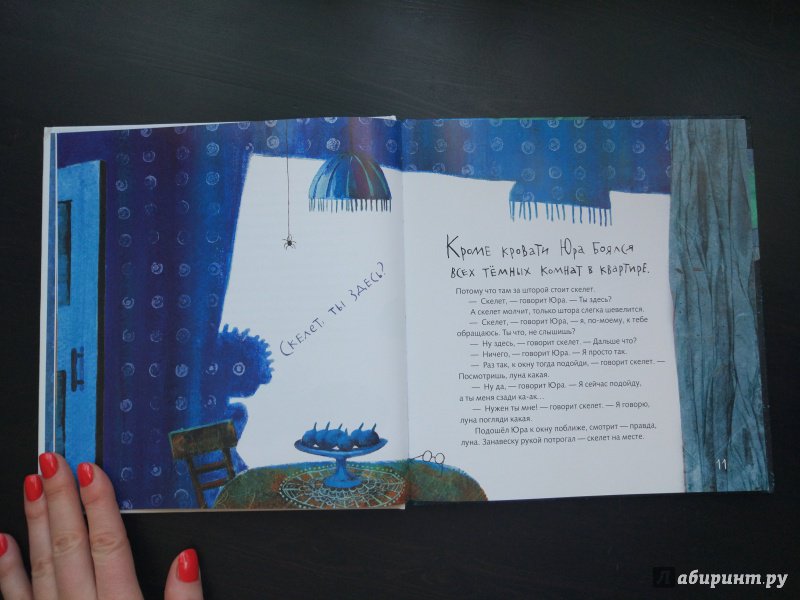 Скелет, ты здесь?
Кроме кровати Юра боялся
всех тёмных комнат в квартире.
Потому что там за шторой стоит скелет.
— Скелет, — говорит Юра. — Ты здесь?
А скелет молчит, только штора слегка шевелится.
— Скелет, — говорит Юра, — я, по-моему, к тебе
обращаюсь. Ты что, не слышишь?
— Ну здесь, — говорит скелет. — Дальше что?
— Ничего, — говорит Юра. — Я просто так.
— Раз так, к окну тогда подойди, — говорит скелет. —
Посмотришь, луна какая.
— Ну да, — говорит Юра. — Я сейчас подойду,
а ты меня сзади ка-ак...
— Нужен ты мне! — говорит скелет. — Я говорю,
луна погляди какая.
Подошёл Юра к окну поближе, смотрит — правда,
луна. Занавеску рукой потрогал — скелет на месте.
11
Лабиринт.ру